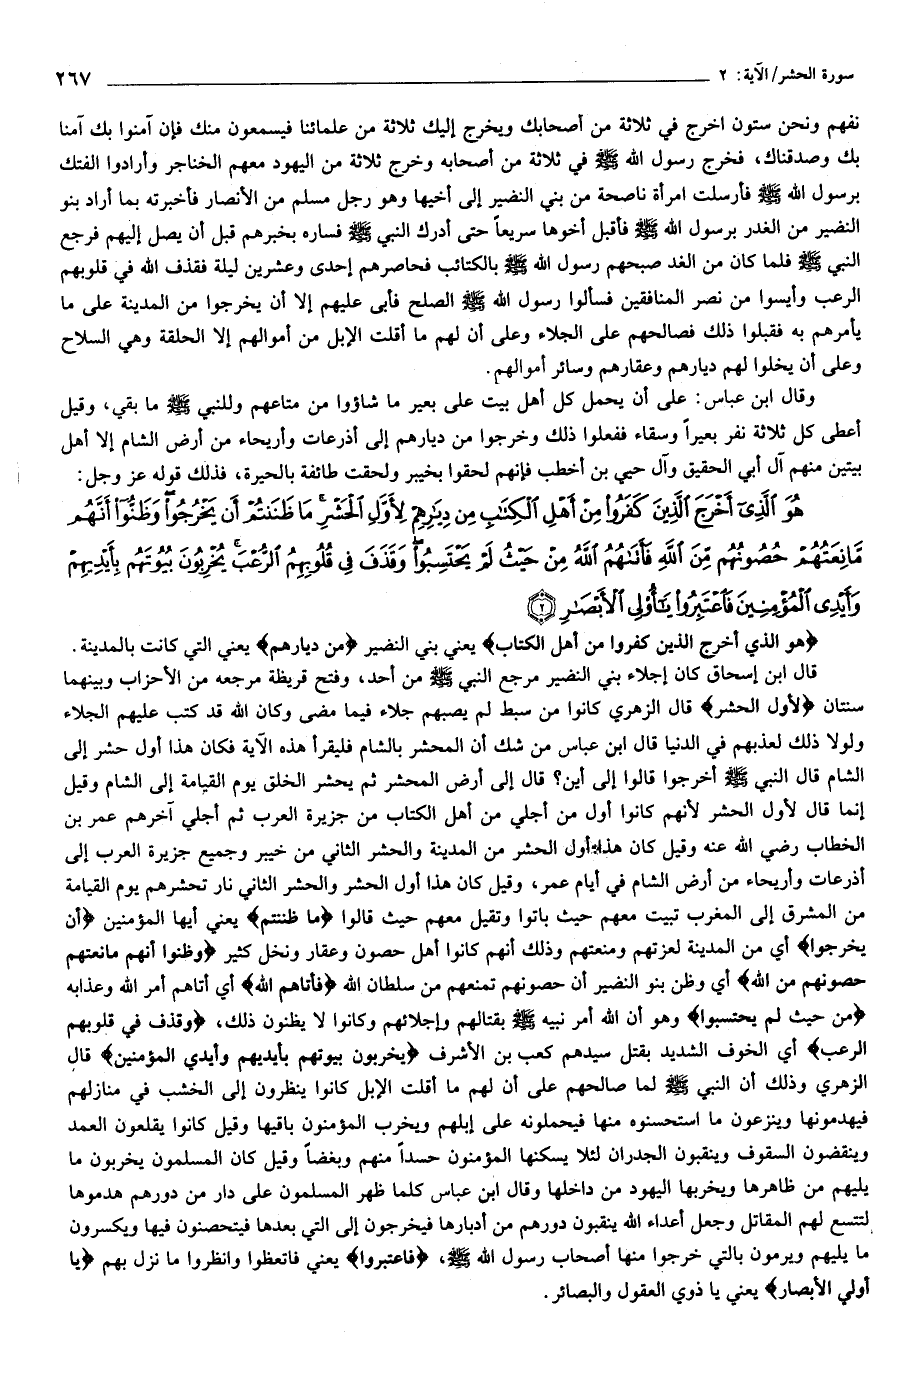 سورة الحشر/ الآية: ٢ ٢٦٧
نفهم ونحن ستون اخرج في ثلاثة من أصحابك ويخرج إليك ثلاثة من علمائنا فيسمعون منك فإن آمنوا بك آمنا
بك وصدقناك، فخرج رسول الله ﷺ في ثلاثة من أصحابه وخرج ثلاثة من اليهود معهم الخناجر وأرادوا الفتك
برسول الله ﷺ فأرسلت امرأة ناصحة من بني النضير إلى أخيها وهو رجل مسلم من الأنصار فأخبرته بما أراد بنو
النضير من الغدر برسول الله ﷺ فأقبل أخوها سريعاً حتى أدرك النبي ﷺ فساره بخبرهم قبل أن يصل إليهم فرجع
النبي ﷺ فلما كان من الغد صبحهم رسول الله ﷺ بالكتائب فحاصرهم إحدى وعشرين ليلة فقذف الله في قلوبهم
الرعب وأيسوا من نصر المنافقين فسألوا رسول الله ﷺ الصلح فأبى عليهم إلا أن يخرجوا من المدينة على ما
يأمرهم به فقبلوا ذلك فصالحهم على الجلاء وعلى أن لهم ما أقلت الإبل من أموالهم إلا الحلقة وهي السلاح
وعلى أن يخلوا لهم ديارهم وعقارهم وسائر أموالهم.
وقال ابن عباس: على أن يحمل كل أهل بيت على بعير ما شاؤوا من متاعهم وللنبي ﷺ ما بقي، وقيل
أعطى كل ثلاثة نفر بعيراً وسقاء ففعلوا ذلك وخرجوا من ديارهم إلى أذرعات وأريحاء من أرض الشام إلا أهل
بيتين منهم آل أبي الحقيق وآل حيي بن أخطب فإنهم لحقوا بخيبر ولحقت طائفة بالحيرة، فذلك قوله عز وجل:
هُوَ ٱلَّذِىٓ أَخْرَجَ ٱلَّذِينَ كَفَرُوا۟ مِنْ أَهْلِ ٱلْكِتَٰبِ مِن دِيَٰرِهِمْ لِأَوَّلِ ٱلْحَشْرِ ۚ مَا ظَنَنتُمْ أَن يَخْرُجُوا۟ ۖ وَظَنُّوٓا۟ أَنَّهُم
مَّانِعَتُهُمْ حُصُونُهُم مِّنَ ٱللَّهِ فَأَتَىٰهُمُ ٱللَّهُ مِنْ حَيْثُ لَمْ يَحْتَسِبُوا۟ ۖ وَقَذَفَ فِى قُلُوبِهِمُ ٱلرُّعْبَ ۚ يُخْرِبُونَ بُيُوتَهُم بِأَيْدِيهِمْ
وَأَيْدِى ٱلْمُؤْمِنِينَ فَٱعْتَبِرُوا۟ يَٰٓأُو۟لِى ٱلْأَبْصَٰرِ ﴿٢﴾
﴿هو الذي أخرج الذين كفروا من أهل الكتاب﴾ يعني بني النضير ﴿من ديارهم﴾ يعني التي كانت بالمدينة.
قال ابن إسحاق كان إجلاء بني النضير مرجع النبي ﷺ من أحد، وفتح قريظة مرجعه من الأحزاب وبينهما
سنتان ﴿لأول الحشر﴾ قال الزهري كانوا من سبط لم يصبهم جلاء فيما مضى وكان الله قد كتب عليهم الجلاء
ولولا ذلك لعذبهم في الدنيا قال ابن عباس من شك أن المحشر بالشام فليقرأ هذه الآية فكان هذا أول حشر إلى
الشام قال النبي ﷺ أخرجوا قالوا إلى أين؟ قال إلى أرض المحشر ثم يحشر الخلق يوم القيامة إلى الشام وقيل
إنما قال لأول الحشر لأنهم كانوا أول من أجلي من أهل الكتاب من جزيرة العرب ثم أجلي آخرهم عمر بن
الخطاب رضي الله عنه وقيل كان هذا أول الحشر من المدينة والحشر الثاني من خيبر وجميع جزيرة العرب إلى
أذرعات وأريحاء من أرض الشام في أيام عمر، وقيل كان هذا أول الحشر والحشر الثاني نار تحشرهم يوم القيامة
من المشرق إلى المغرب تبيت معهم حيث باتوا وتقيل معهم حيث قالوا ﴿ما ظننتم﴾ يعني أيها المؤمنين ﴿أن
يخرجوا﴾ أي من المدينة لعزتهم ومنعتهم وذلك أنهم كانوا أهل حصون وعقار ونخل كثير ﴿وظنوا أنهم مانعتهم
حصونهم من الله﴾ أي وظن بنو النضير أن حصونهم تمنعهم من سلطان الله ﴿فأتاهم الله﴾ أي أتاهم أمر الله وعذابه
﴿من حيث لم يحتسبوا﴾ وهو أن الله أمر نبيه ﷺ بقتالهم وإجلائهم وكانوا لا يظنون ذلك، ﴿وقذف في قلوبهم
الرعب﴾ أي الخوف الشديد بقتل سيدهم كعب بن الأشرف ﴿يخربون بيوتهم بأيديهم وأيدي المؤمنين﴾ قال
الزهري وذلك أن النبي ﷺ لما صالحهم على أن لهم ما أقلت الإبل كانوا ينظرون إلى الخشب في منازلهم
فيهدمونها وينزعون ما استحسنوه منها فيحملونه على إبلهم ويخرب المؤمنون باقيها وقيل كانوا يقلعون العمد
وينقضون السقوف وينقبون الجدران لئلا يسكنها المؤمنون حسداً منهم وبغضاً وقيل كان المسلمون يخربون ما
يليهم من ظاهرها ويخربها اليهود من داخلها وقال ابن عباس كلما ظهر المسلمون على دار من دورهم هدموها
لتتسع لهم المقاتل وجعل أعداء الله ينقبون دورهم من أدبارها فيخرجون إلى التي بعدها فيتحصنون فيها ويكسرون
ما يليهم ويرمون بالتي خرجوا منها أصحاب رسول الله ﷺ، ﴿فاعتبروا﴾ يعني فاتعظوا وانظروا ما نزل بهم ﴿يا
أولي الأبصار﴾ يعني يا ذوي العقول والبصائر.